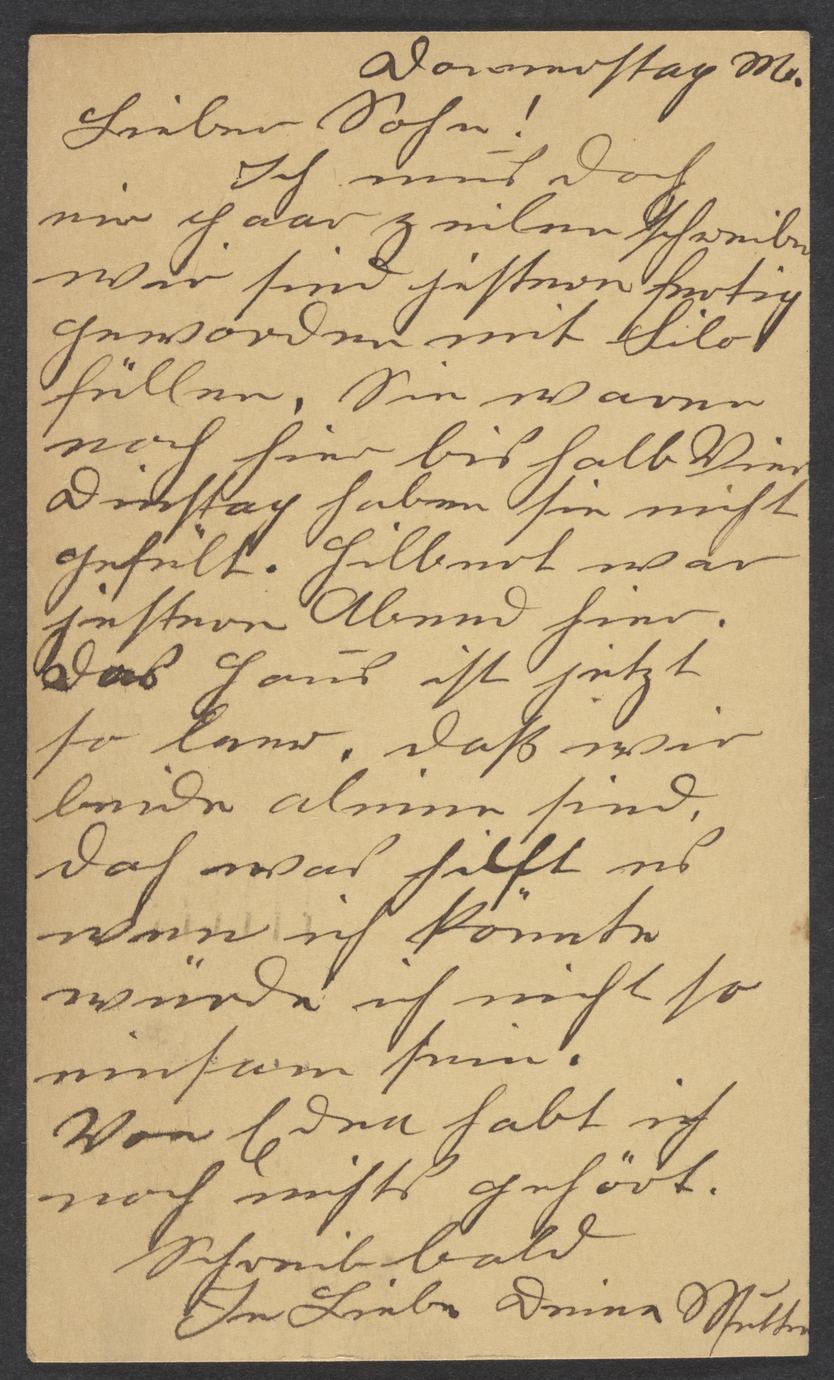 Donnerstag M.
Lieber Sohn!
Ich mus doch
ein paar zeilen schreiben
wir sind jestern fertig
geworden mit Silo
füllen, Sie waren
noch hier bis halb Vier
Dinstag haben sie nicht
gefült. Hilbert war
jestern Abend hier.
Das Haus ist jetzt
so leer, daß wir
beide aleine sind,
doch was hilft es
wenn ich könnte
würde ich nicht so
einsam sein.
Von Edna habt ich
noch nichts gehört.
Schreib bald
In Liebe Deine Mutter